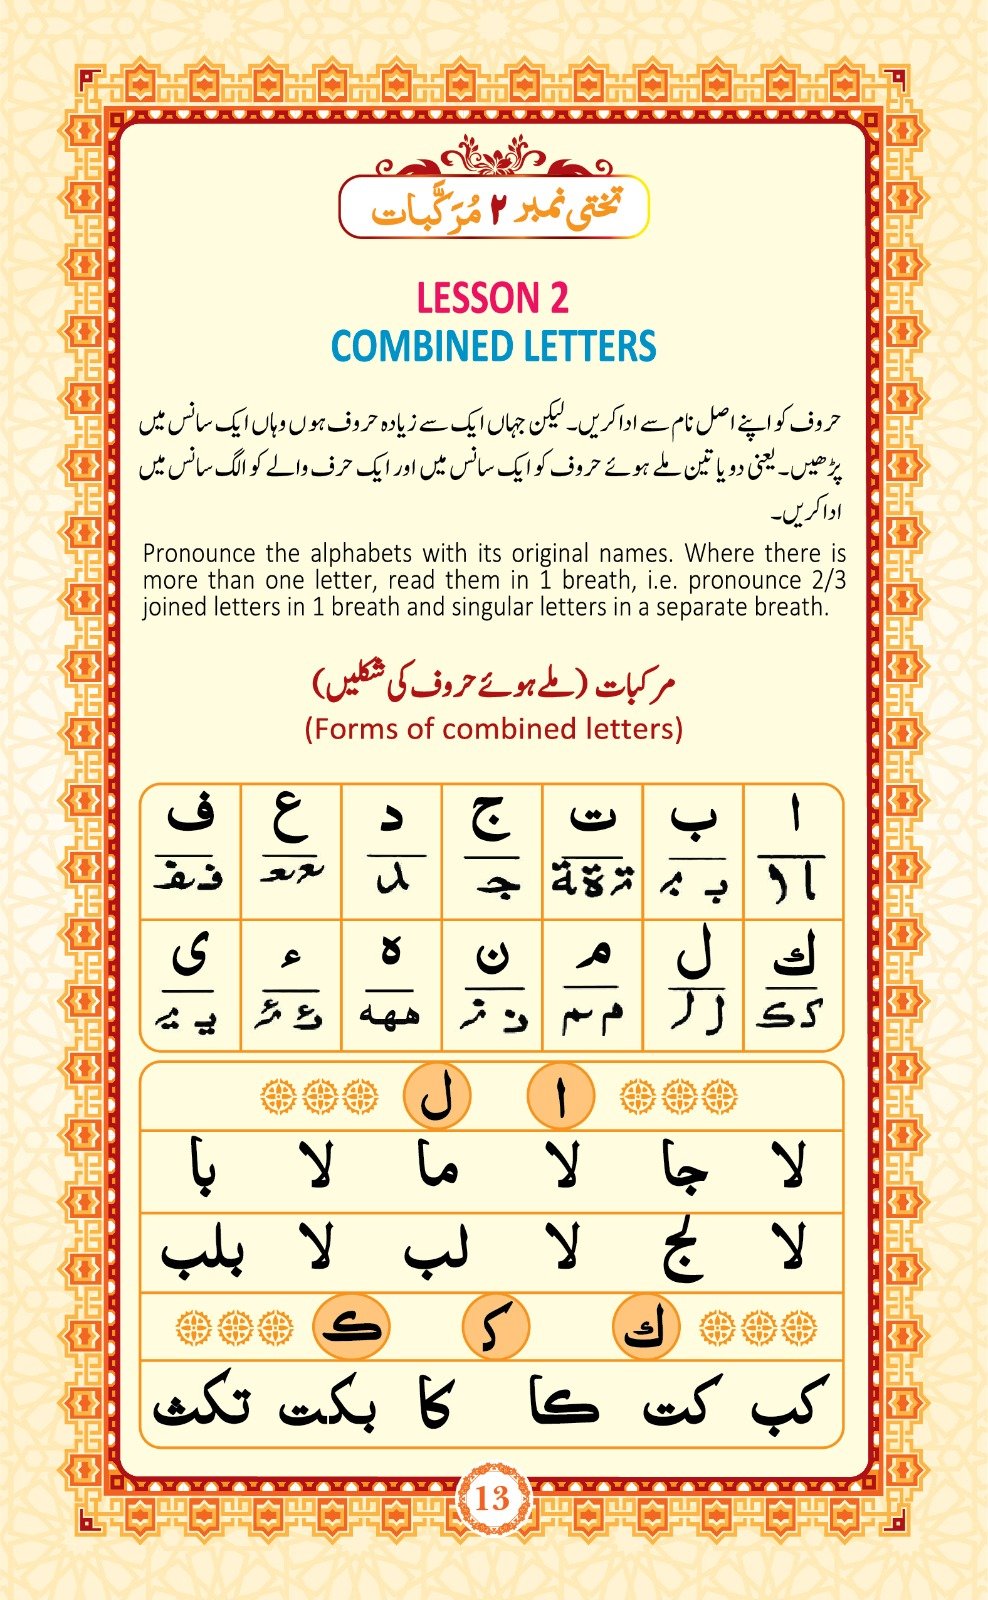 تختی نمبر ۲ مُرَکَّبات
LESSON 2
COMBINED LETTERS
حروف کو اپنے اصل نام سے ادا کریں۔ لیکن جہاں ایک سے زیادہ حروف ہوں وہاں ایک سانس میں
پڑھیں۔ یعنی دو یا تین ملے ہوئے حروف کو ایک سانس میں اور ایک حرف والے کو الگ سانس میں
ادا کریں۔
Pronounce the alphabets with its original names. Where there is
more than one letter, read them in 1 breath, i.e. pronounce 2/3
joined letters in 1 breath and singular letters in a separate breath.
مرکبات (ملے ہوئے حروف کی شکلیں)
(Forms of combined letters)
ا ب ت ج د ع ف
ك ل م ن ه ء ی
ا ل
لا جا لا ما لا با
لا لج لا لب لا بلب
ك ک ڪ
کب کت کا کا بکت تکث
13